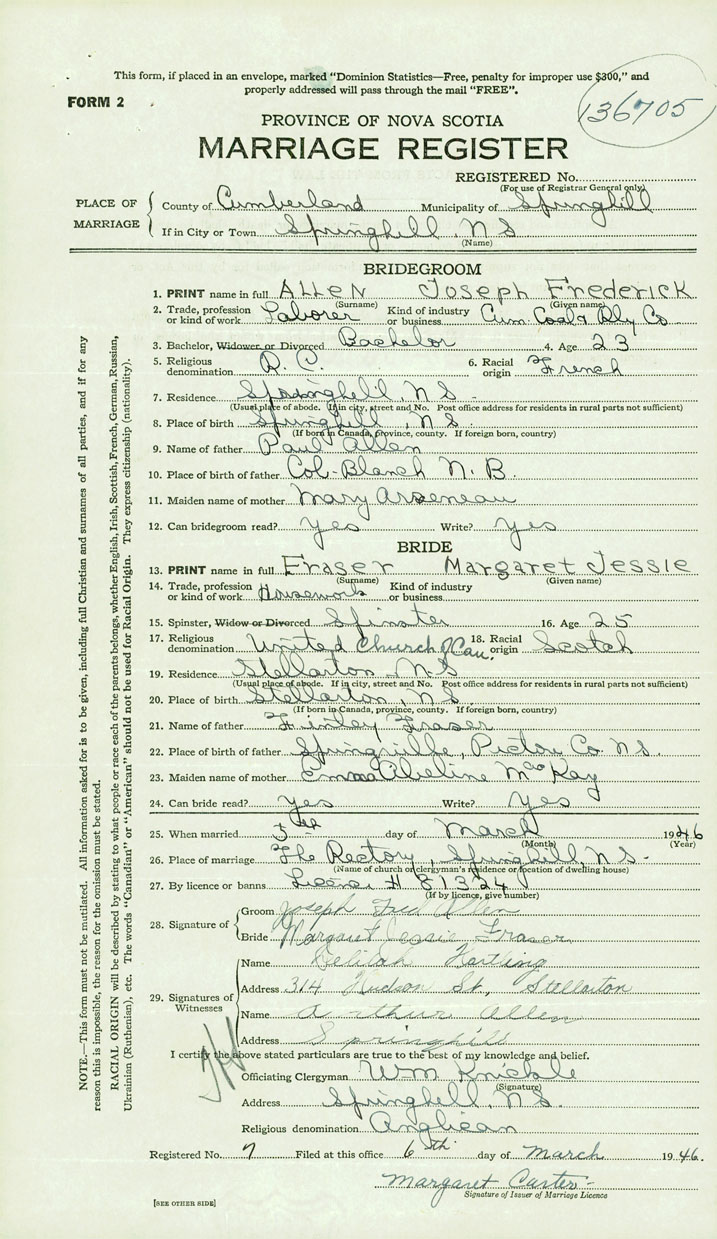 This form, if placed in an envelope, marked “Dominion Statistics—Free, penalty for improper use $300,” and
properly addressed will pass through the mail “FREE”.
FORM 2
136705
PROVINCE OF NOVA SCOTIA
MARRIAGE REGISTER
REGISTERED No.
(For use of Registrar General only)
PLACE OF MARRIAGE
County of Cumberland Municipality of Springhill
If in City or Town Springhill N S
(Name)
BRIDEGROOM
1. PRINT name in full ALLEN JOSEPH FREDERICK
(Surname) (Given name)
2. Trade, profession or kind of work Laborer Kind of industry or business Cum. Coal & Rly Co
3. Bachelor, Widower or Divorced Bachelor 4. Age 23
5. Religious denomination R. C. 6. Racial origin French
7. Residence Springhill, N S
(Usual place of abode. If in city, street and No. Post office address for residents in rural parts not sufficient)
8. Place of birth Springhill, N S.
(If born in Canada, province, county. If foreign born, country)
9. Name of father Paul Allen
10. Place of birth of father Col-Blanch N. B.
11. Maiden name of mother Mary Arseneau
12. Can bridegroom read? Yes Write? Yes
BRIDE
13. PRINT name in full FRASER MARGARET JESSIE
(Surname) (Given name)
14. Trade, profession or kind of work Housework Kind of industry or business
15. Spinster, Widow or Divorced Spinster 16. Age 25
17. Religious denomination United Church of Can. 18. Racial origin Scotch
19. Residence Stellarton N S
(Usual place of abode. If in city, street and No. Post office address for residents in rural parts not sufficient)
20. Place of birth Stellarton, N S
(If born in Canada, province, county. If foreign born, country)
21. Name of father Finley Fraser
22. Place of birth of father Springville, Pictou Co. N S.
23. Maiden name of mother MacKay
24. Can bride read? Yes Write? Yes
25. When married 5th day of March 1946
(Month) (Year)
26. Place of marriage The Rectory, Springhill, N S.
(Name of church or clergyman's residence or location of dwelling house)
27. By licence or banns # 81324
(If by licence, give number)
28. Signature of
Groom Joseph Fred Allen
Bride Margaret Jessie Fraser
29. Signatures of Witnesses
Name Delilah Hartling
Address 314 Hudson St, Stellarton
Name Arthur Allen
Address Springhill
I certify the above stated particulars are true to the best of my knowledge and belief.
Officiating Clergyman Wm
(Signature)
Address Springhill, N S.
Religious denomination Anglican
Registered No. 7 Filed at this office 6th day of March 1946.
Margaret Carter
Signature of Issuer of Marriage Licence
[SEE OTHER SIDE]
NOTE.—This form must not be mutilated. All information asked for is to be given, including full Christian and surnames of all parties, and if for any
reason this is impossible, the reason for the omission must be stated.
RACIAL ORIGIN will be described by stating to what people or race each of the parents belongs, whether English, Irish, Scottish, French, German, Russian,
Ukrainian (Ruthenian), etc. The words “Canadian” or “American” should not be used for Racial Origin. They express citizenship (nationality).